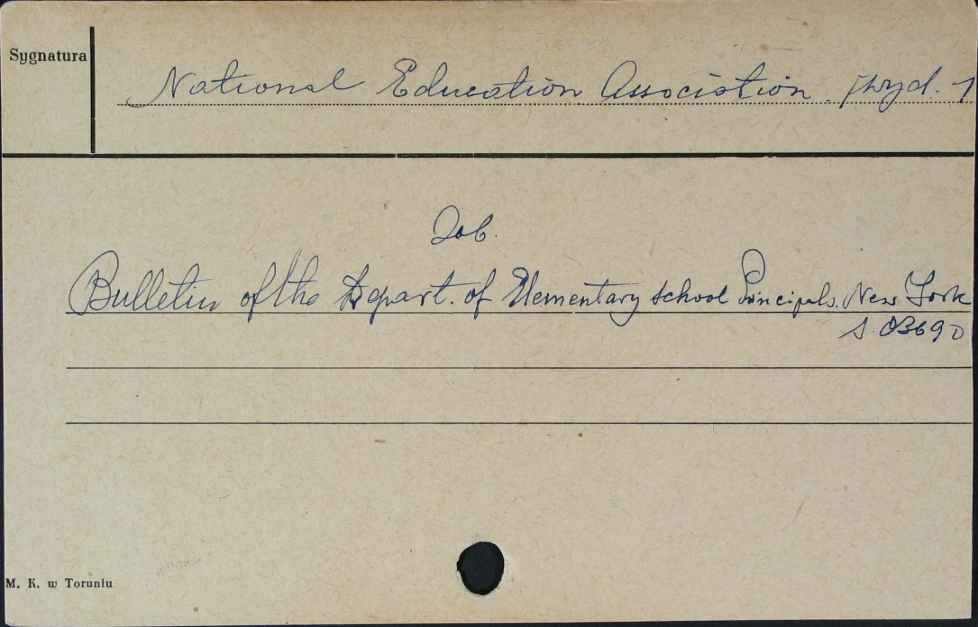 Sygnatura
National Education Association. [wyd.]
Zob.
Bulletin of the Depart. of Elementary school Principals. New York
S. 03690
M. K. w Toruniu